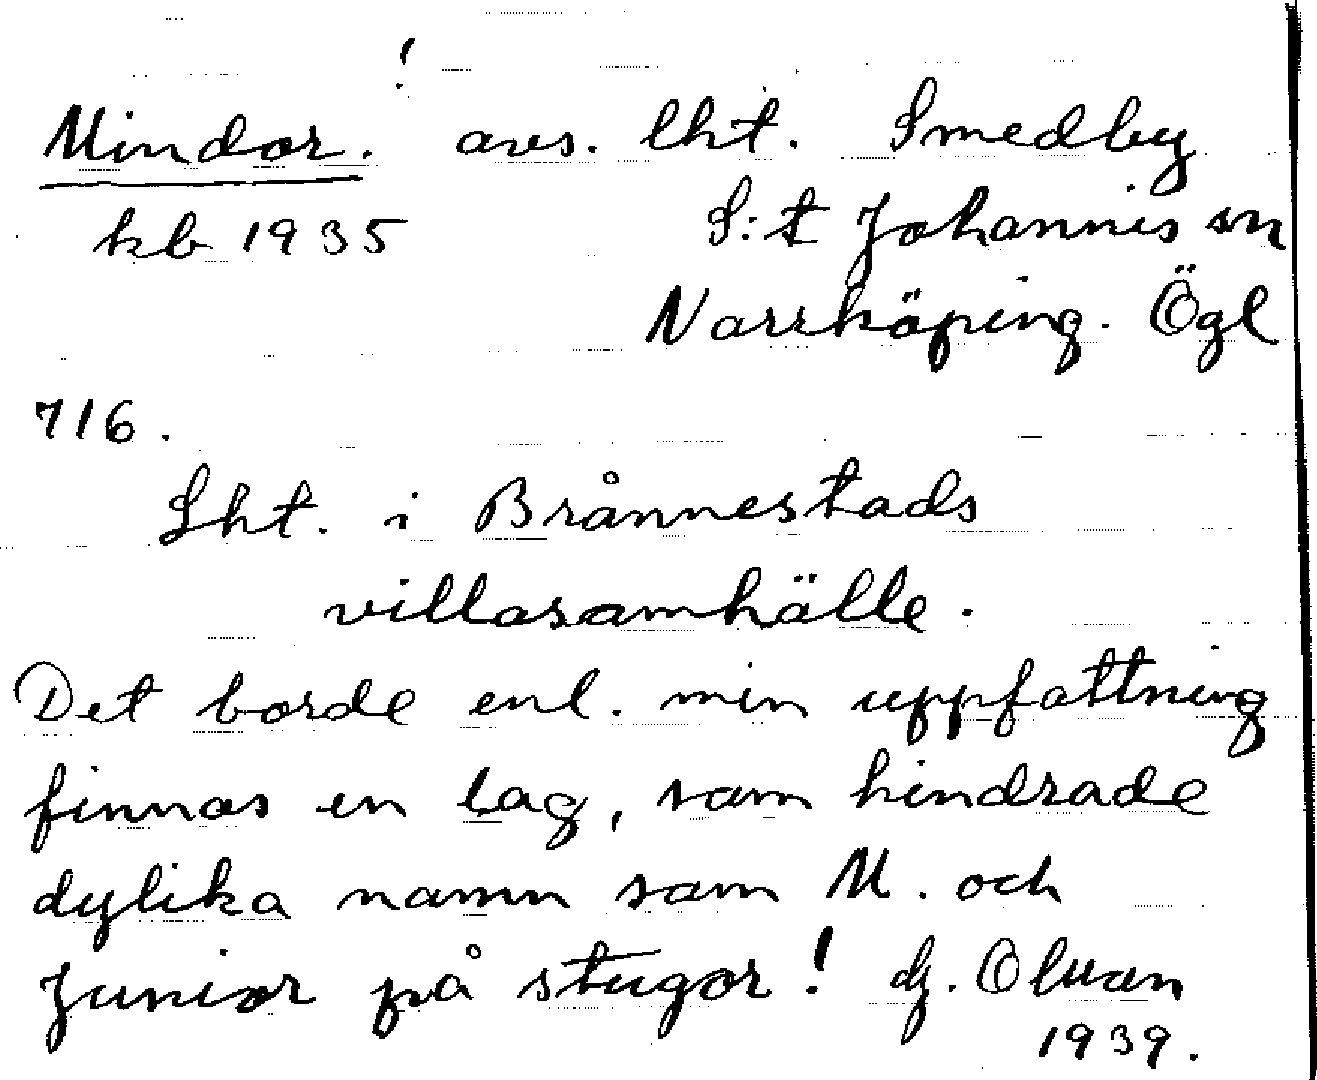 Mindor. ! avs. lht. Smedby
kb 1935 S:t Johannis sn
Norrköping. Ögl
716.
Lht. i Brånnestads
villasamhälle.
Det borde enl. min uppfattning
finnas en lag, som hindrade
dylika namn som M. och
Junior på stugor!
1939.